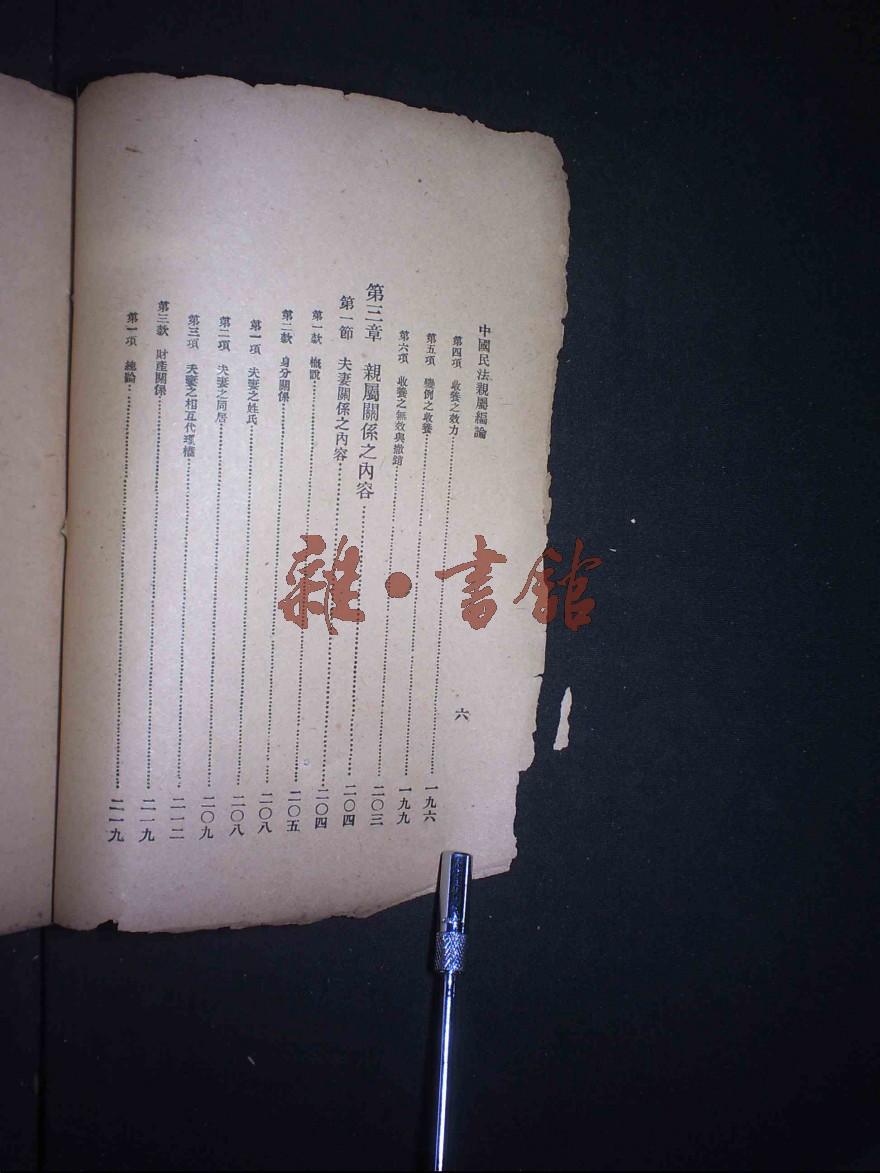 中國民法親屬編論
六
第四項　收養之效力……一九六
第五項　變例之收養……一九九
第六項　收養之無效與撤銷……二〇三
第三章　親屬關係之內容……二〇四
第一節　夫妻關係之內容……二〇四
第一款　概說……二〇五
第二款　身分關係……二〇八
第一項　夫妻之姓氏……二〇八
第二項　夫妻之同居……二〇九
第三項　夫妻之相互代理權……二一二
第三款　財產關係……二一九
第一項　總論……二一九
雜·書館